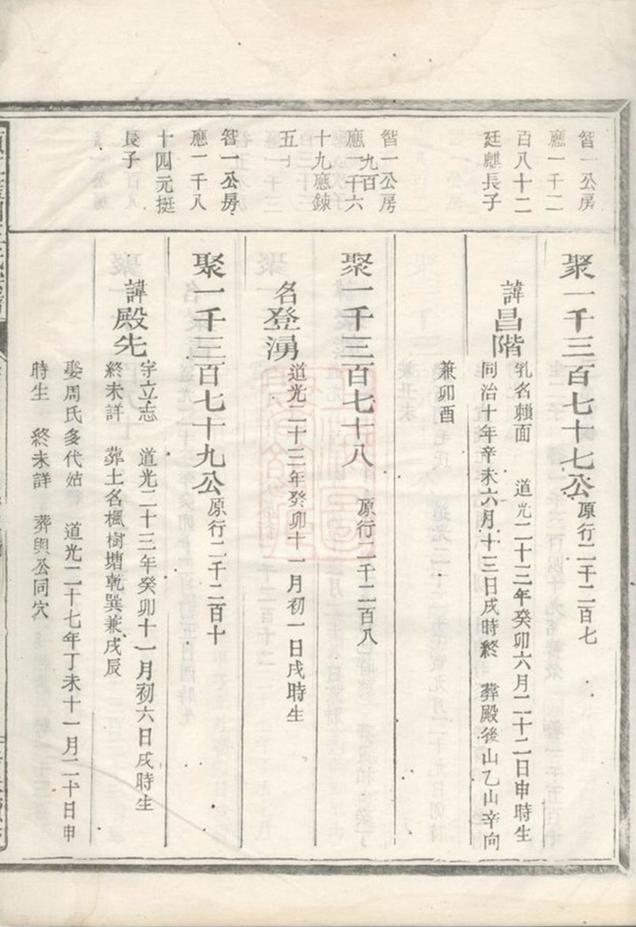 智一公房
應一千二
百八十二
廷麒長子
聚一千三百七十七公原行二千二百七
諱昌階
乳名賴面 道光二十三年癸卯六月二十二日申時生
同治十年辛未六月十三日戌時終 葬殿後山乙山辛向
兼卯酉
智一公房
應一千六
百九
十九應錬
五子
聚一千三百七十八 原行二千二百八
名登湧
道光二十三年癸卯十一月初一日戌時生
智一公房
應一千八
十四元挺
長子
聚一千三百七十九公原行二千二百十
諱殿先
字立志 道光二十三年癸卯十一月初六日戌時生
終未詳 葬土名楓樹塘乾巽兼戌辰
娶周氏多代姑 道光二十七年丁未十一月二十日申
時生 終未詳 葬與公同穴